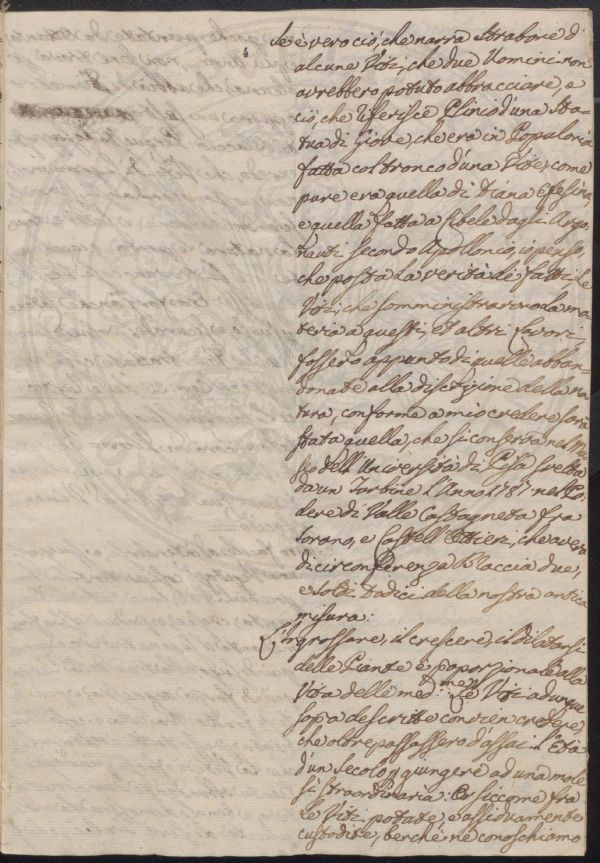 Se è vero ciò, che narra Strabone d'
alcune Viti, che due Uomini non
avrebbero potuto abbracciare, e
ciò, che riferisce Plinio d'una Sta-
tua di Giove, che era in Populonia
fatta col tronco d'una Vite, come
pure era quella di Diana Efesina,
e quella fatta a Cibele dagli Argo-
nauti secondo Apollonio, io penso,
che posta la verità di fatti, le
Viti, che somministrarono la ma-
teria a questi, et altri lavori,
fossero appunto di quelle abban-
donate alla discrezione della na-
tura, conforme a mio credere sarà
stata quella, che si conserva nel Mu-
seo dell'Università di Pisa svelta
da un Turbine l'Anno 1787 nel Po-
dere di Valle Castagneta fra
Sorano, e Castell'Ottieri, che aveva
di circonferenza Braccia due,
e soldi tredici della nostra antica
misura:
L'ingrossare, il crescere, il dilatarsi
delle Piante è proporzionale alla
Vita delle med:me Le Viti adunque
sopa descritte convien credere,
che oltrepassassero d'assai l'Età
d'un secolo p giungere ad una mole
sì straordinaria: Or siccome fra
le Viti potate, e assiduamente
custodite, berchè ne conoschiamo